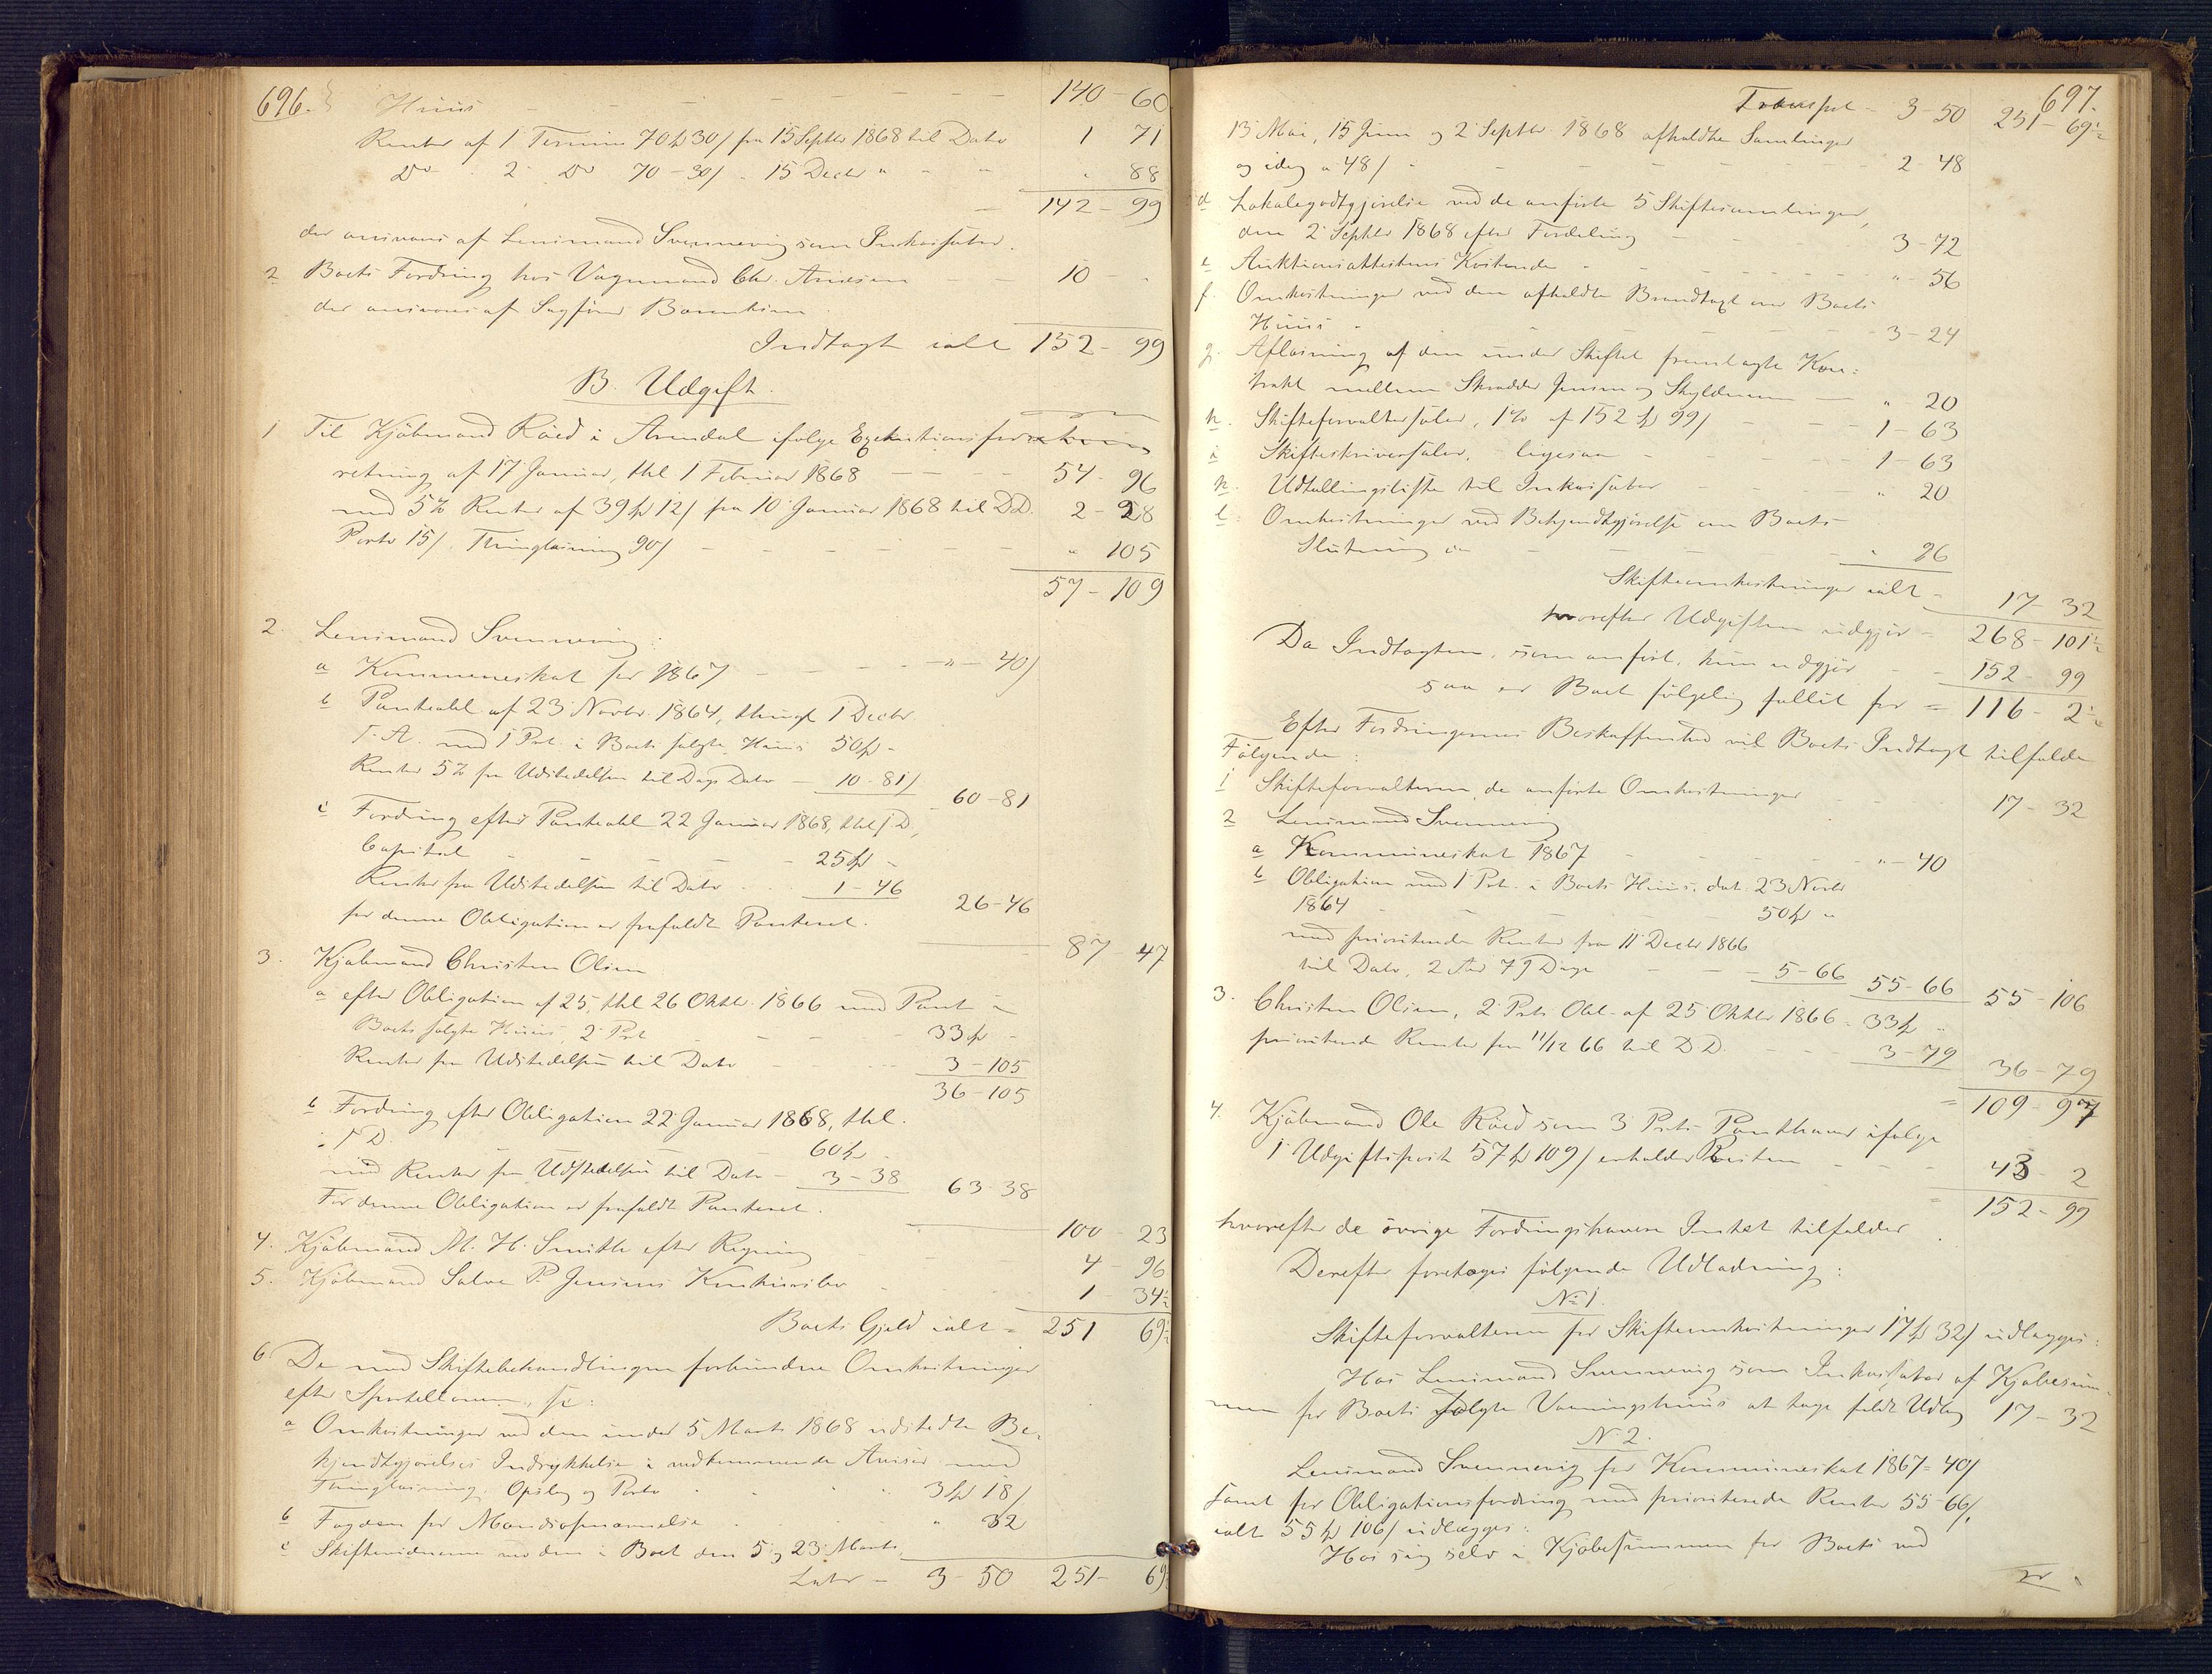 696.
Huus - - - - - - - 140 - 60
Renter af 1 Termin 70 Sp 30 / fra 15 Septbr 1868 til Dato 1 71
Do - 2 - Do 70 - 30 / - 15 Decbr " - - " 88
- 142 - 99
der ansvares af Lensmand Svennevig som Inkassator.
2 Boets Fordring hos Vognmand Chr. Andersen - - 10 -
der ansvares af Sagfører
Indtægt ialt 152 - 99
B. Udgift.
1 Til Kjöbmand Röed i Arendal ifølge Exekutionsfor
retning af 17 Januar, thl 1 Februar 1868 - - - - 54 - 96
med 5% Renter af 39 Sp 12 / fra 10 Januar 1868 til DD. 2 - 28
Porto 15 /, Thinglæsning 90 / - - - - - - " 105
57 - 109
2. Lensmand Svennevig:
a Kommuneskat for 1867 - - - - " - 40 /
b Panteobl af 23 Novbr. 1864, thingl 1 Decbr
s. A. med 1 Prt. i Boets solgte Huus 50 Sp -
Renter 5% fra Udstedelsen til Dags Dato - 10 - 81 /
60 - 81
c Fordring efter Panteobl 22 Januar 1868, thl s. D.,
Capital - - - - - 25 Sp -
Renter fra Udstedelsen til Dato - 1 - 46
26 - 46
for denne Obligation er frafaldt Panteret.
- 87 - 47
3. Kjöbmand Christen Olsen
a efter Obligation af 25, thl 26 Oktbr. 1866 med Pant i
Boets solgte Huus, 2 Prt - - - - 33 Sp -
Renter fra Udstedelsen til Dato - - - - 3 - 105
36 - 105
b Fordring efter Obligation 22 Januar 1868, thl.
s. D. - - - - 60 Sp -
med Renter fra Udstedelsen til Dato - 3 - 38 63 - 38
For denne Obligation er frafaldt Panteret.
100 - 23
4. Kjöbmand M. H. Smith efter Regning - - - 4 - 96
5. Kjöbmand Salve P. Jensens Konkursbo - - - 1 34½
Boets Gjeld ialt = 251 69½
6 De med Skiftebehandlingen forbundne Omkostninger
efter Sportelloven, se:
a Omkostninger ved den under 5 Marts 1868 udstedte Be-
kjendtgjørelses Indrykkelse i vedkommende Aviser med
Thinglæsning, Opslag og Porto - - " 3 Sp 18 /
b Fogden for - - - " 32
c Skiftevidnerne ved den i Boet den 5 og 23 Marts,
Latus - 3 - 50 251 - 69½
697.
Transport - 3 - 50 251 - 69½
13 Mai, 15 Juni og 2 Septbr. 1868 afholdte Samlinger
og idag a 48 / - - - - - - 2 - 48
d Lokalegodtgjørelse ved de anførte 5 Skiftesamlinger,
den 2 Septbr 1868 efter Fordeling - - - 3 - 72
e Auktionsattestens Kostende - - - - - " - 56
f. Omkostninger ved den afholdte Brandtaxt over Boets
Huus - - - - - - 3 - 24
g. Afløsning af den under Skiftet fremlagte Kon-
trakt mellem Skrædder Jensen og Skyldneren - " - 20
h. Skifteforvaltersalær, 1% af 152 Sp 99 / - - - 1 - 63
i Skifteskriversalær, ligesaa - - - - 1 - 63
k. Udtællingsliste til Inkassator - - - " 20
l. Omkostninger ved Bekjendtgjørelse om Boets
Slutning - - - - - " 26
Skifteomkostninger ialt - 17 - 32
hvorefter Udgiften udgjør - 268 - 101½
Da Indtægten, som anført, kun udgjør - - 152 - 99
saa er Boet følgelig fallit for = 116 - 2½
Efter Fordringernes Beskaffenhed vil Boets Indtægt tilfalde
Følgende:
1 Skifteforvalteren, de anførte Omkostninger - - 17 - 32
2 Lensmand Svennevig
a Kommuneskat 1867 - - - - " - 40
b Obligation med 1 Prt. i Boets Huus, dat. 23 Novbr
1864 - - - - 50 Sp "
med prioriterede Renter fra 11 Decbr 1866
til Dato, 2 Aar 79 Dage - - - 5 - 66 55 - 66 55 - 106
3. Christen Olsen, 2 Prts Obl. af 25 Oktbr 1866 - 33 Sp "
prioriterede Renter fra 11/12 66 til DD. - - - 3 - 79
36 - 79
= 109 - 97
4. Kjöbmand Ole Röed som 3 Prts Panthaver ifølge
1 Udgiftspost 57 Sp 109 / erholder Resten - - - 43 - 2
= 152 - 99
hvorefter de øvrige Fordringshavere Intet tilfalder.
Derefter foretages følgende Udlodning:
No 1.
Skifteforvalteren for Skifteomkostninger 17 Sp 32 / udlægges:
Hos Lensmand Svennevig som Inkassator af Kjøbesum-
men for Boets solgte Vaaningshuus at tage fuldt Udlæg 17 - 32
N 2.
Lensmand Svennevig for Kommuneskat 1867 - 40 /
samt for Obligationsfordring med prioriterede Renter 55 - 66 /,
ialt 55 Sp 106 / udlægges:
Hos sig selv i Kjøbesummen for Boets ved